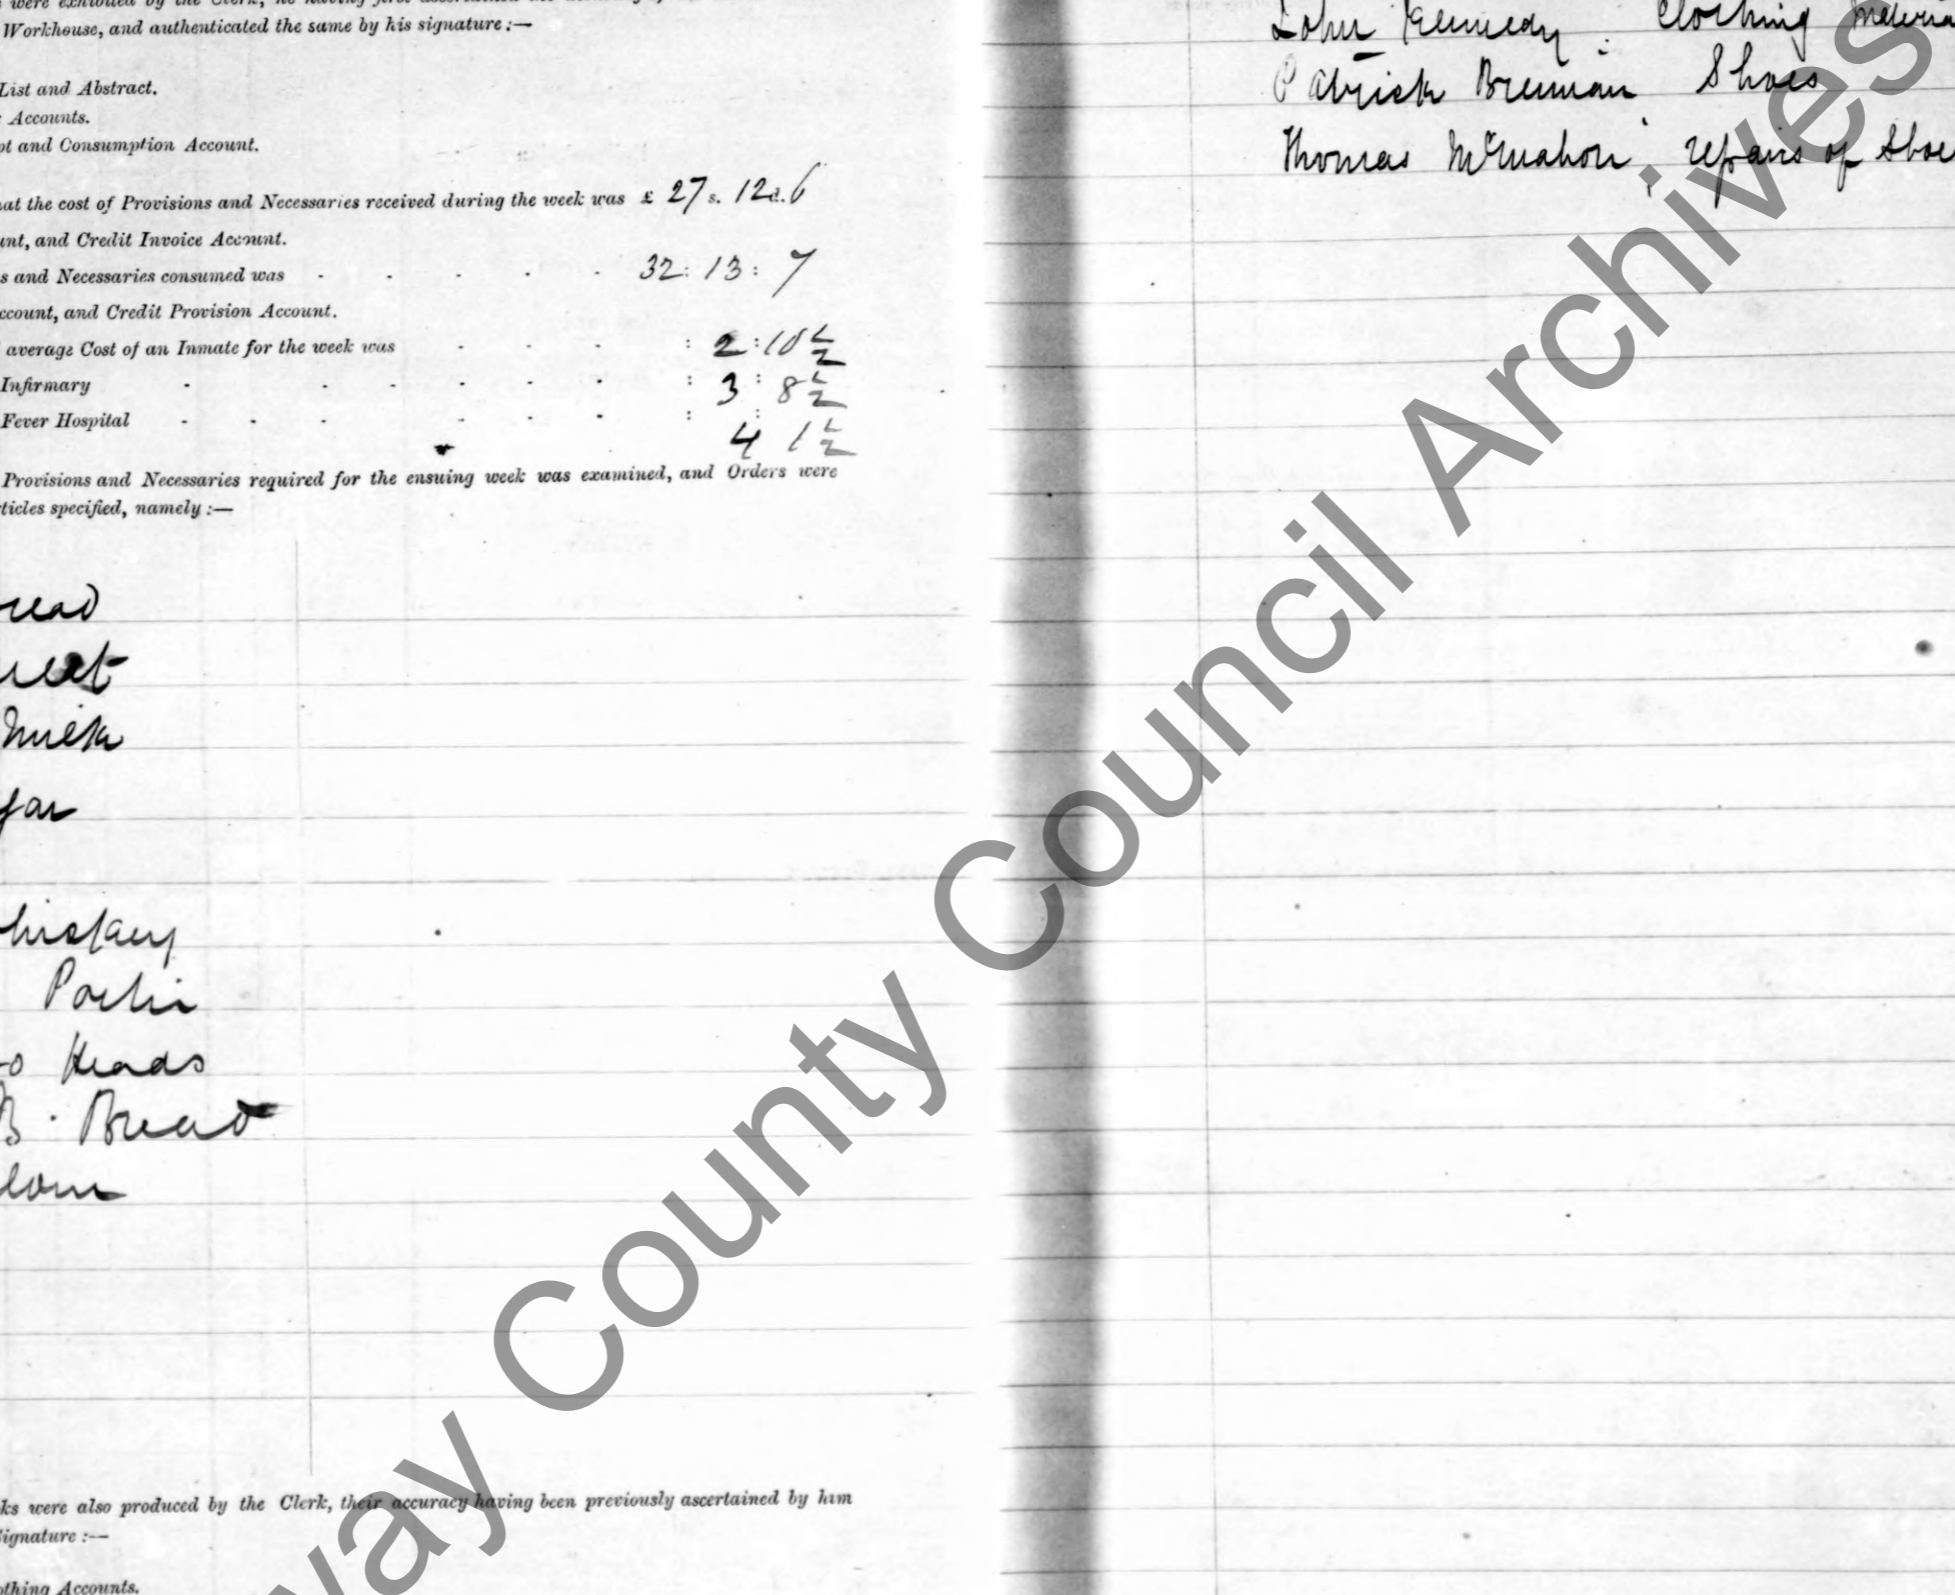 were exhibited by the Clerk, he having first ascertained
Workhouse, and authenticated the same by his signature :—
List and Abstract.
Accounts.
and Consumption Account.
at the cost of Provisions and Necessaries received during the week was £ 27 s. 12 d. 6
unt, and Credit Invoice Account.
s and Necessaries consumed was - - - - - 32 : 13 : 7
ccount, and Credit Provision Account.
average Cost of an Inmate for the week was - - - : 2 : 10 ½
Infirmary - - - - - - : 3 : 8 ½
Fever Hospital - - - - - - : 4 : 1 ½
Provisions and Necessaries required for the ensuing week was examined, and Orders were
ticles specified, namely :—
read
Milk
gar
hiskey
Heads
B. Bread
ks were also produced by the Clerk, their accuracy having been previously ascertained by him
Signature :—
othing Accounts.
John Kennedy : Clothing Materia
Patrick Brennan Shoes
Thomas McMahon, repairs of Shoe
way County Council Archives